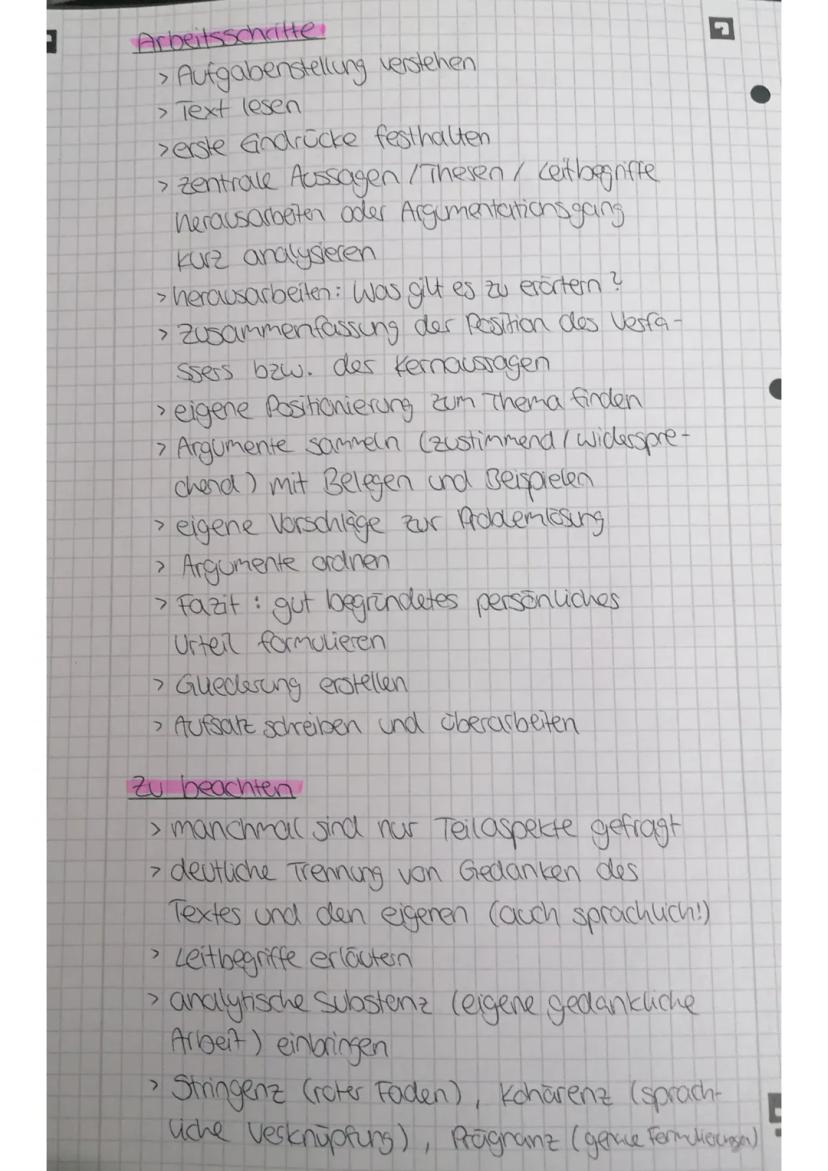 Arbeitsschritte
> Aufgabenstellung verstehen
> Text lesen
> erste Eindrücke festhalten
> zentrale Aussagen / Thesen / Leitbegriffe
herausarbeiten oder Argumentationsgang
kurz analysieren
> herausarbeiten: Was gilt es zu erörtern?
> Zusammenfassung der Position des Verfa-
ssers bzw. der Kernaussagen
> eigene Positionierung zum Thema finden
> Argumente sammeln (zustimmend / widerspre-
chend) mit Belegen und Beispielen
> eigene Vorschläge zur Problemlösung
> Argumente ordnen
> Fazit: gut begründetes persönliches
Urteil formulieren
> Gliederung erstellen
> Aufsatz schreiben und überarbeiten
Zu beachten
> manchmal sind nur Teilaspekte gefragt
> deutliche Trennung von Gedanken des
Textes und den eigenen (auch sprachlich!)
> Leitbegriffe erläutern
> analytische Substanz (eigene gedankliche
Arbeit) einbringen
> Stringenz (roter Faden), Kohärenz (sprach-
liche Verknüpfung), Prägnanz (genaue Formulierungen)